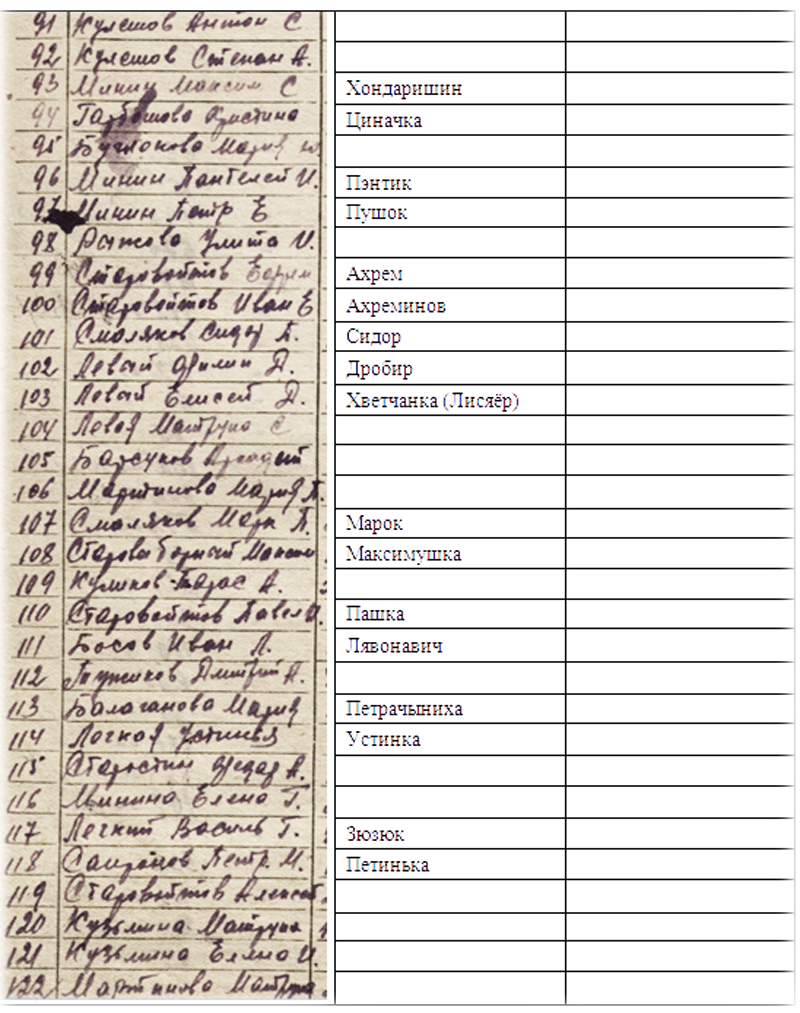 91 Кулешов Антон С
92 Кулешов Степан А.
93 Минин Максим С Хондаришин
94 Гарбошова Кристина Циначка
95 Мария
96 Минин Пантелей И. Пэнтик
97 Минин Петр Е Пушок
98 Рыжова Улита И.
99 Старовойтов Ефрем Ахрем
100 Старовойтов Иван Е Ахреминов
101 Смоляков Сидор П. Сидор
102 Левый Филип Д. Дробир
103 Левый Елисей Д. Хветчанка (Лисяёр)
104 Левая Матруна С
105 Барсуков Аркадий
106 Мартинова Мария П.
107 Смоляков Марк П. Марок
108 Максим Максимушка
109 Куликов Тарас А.
110 Старовойтов Павел И. Пашка
111 Босов Иван Л. Лявонавич
112 Тужиков Дмитрий А.
113 Балаганова Мария Петрачыниха
114 Легкая Устинья Устинка
115 Старостин А.
116 Минина Елена Г.
117 Легкий Василь Г. Зюзюк
118 Сапронов Петр М. Петинька
119 Старовойтов Алексей
120 Кузьмина Матруна
121 Кузьмина Елена И.
122 Мартинова Матруна